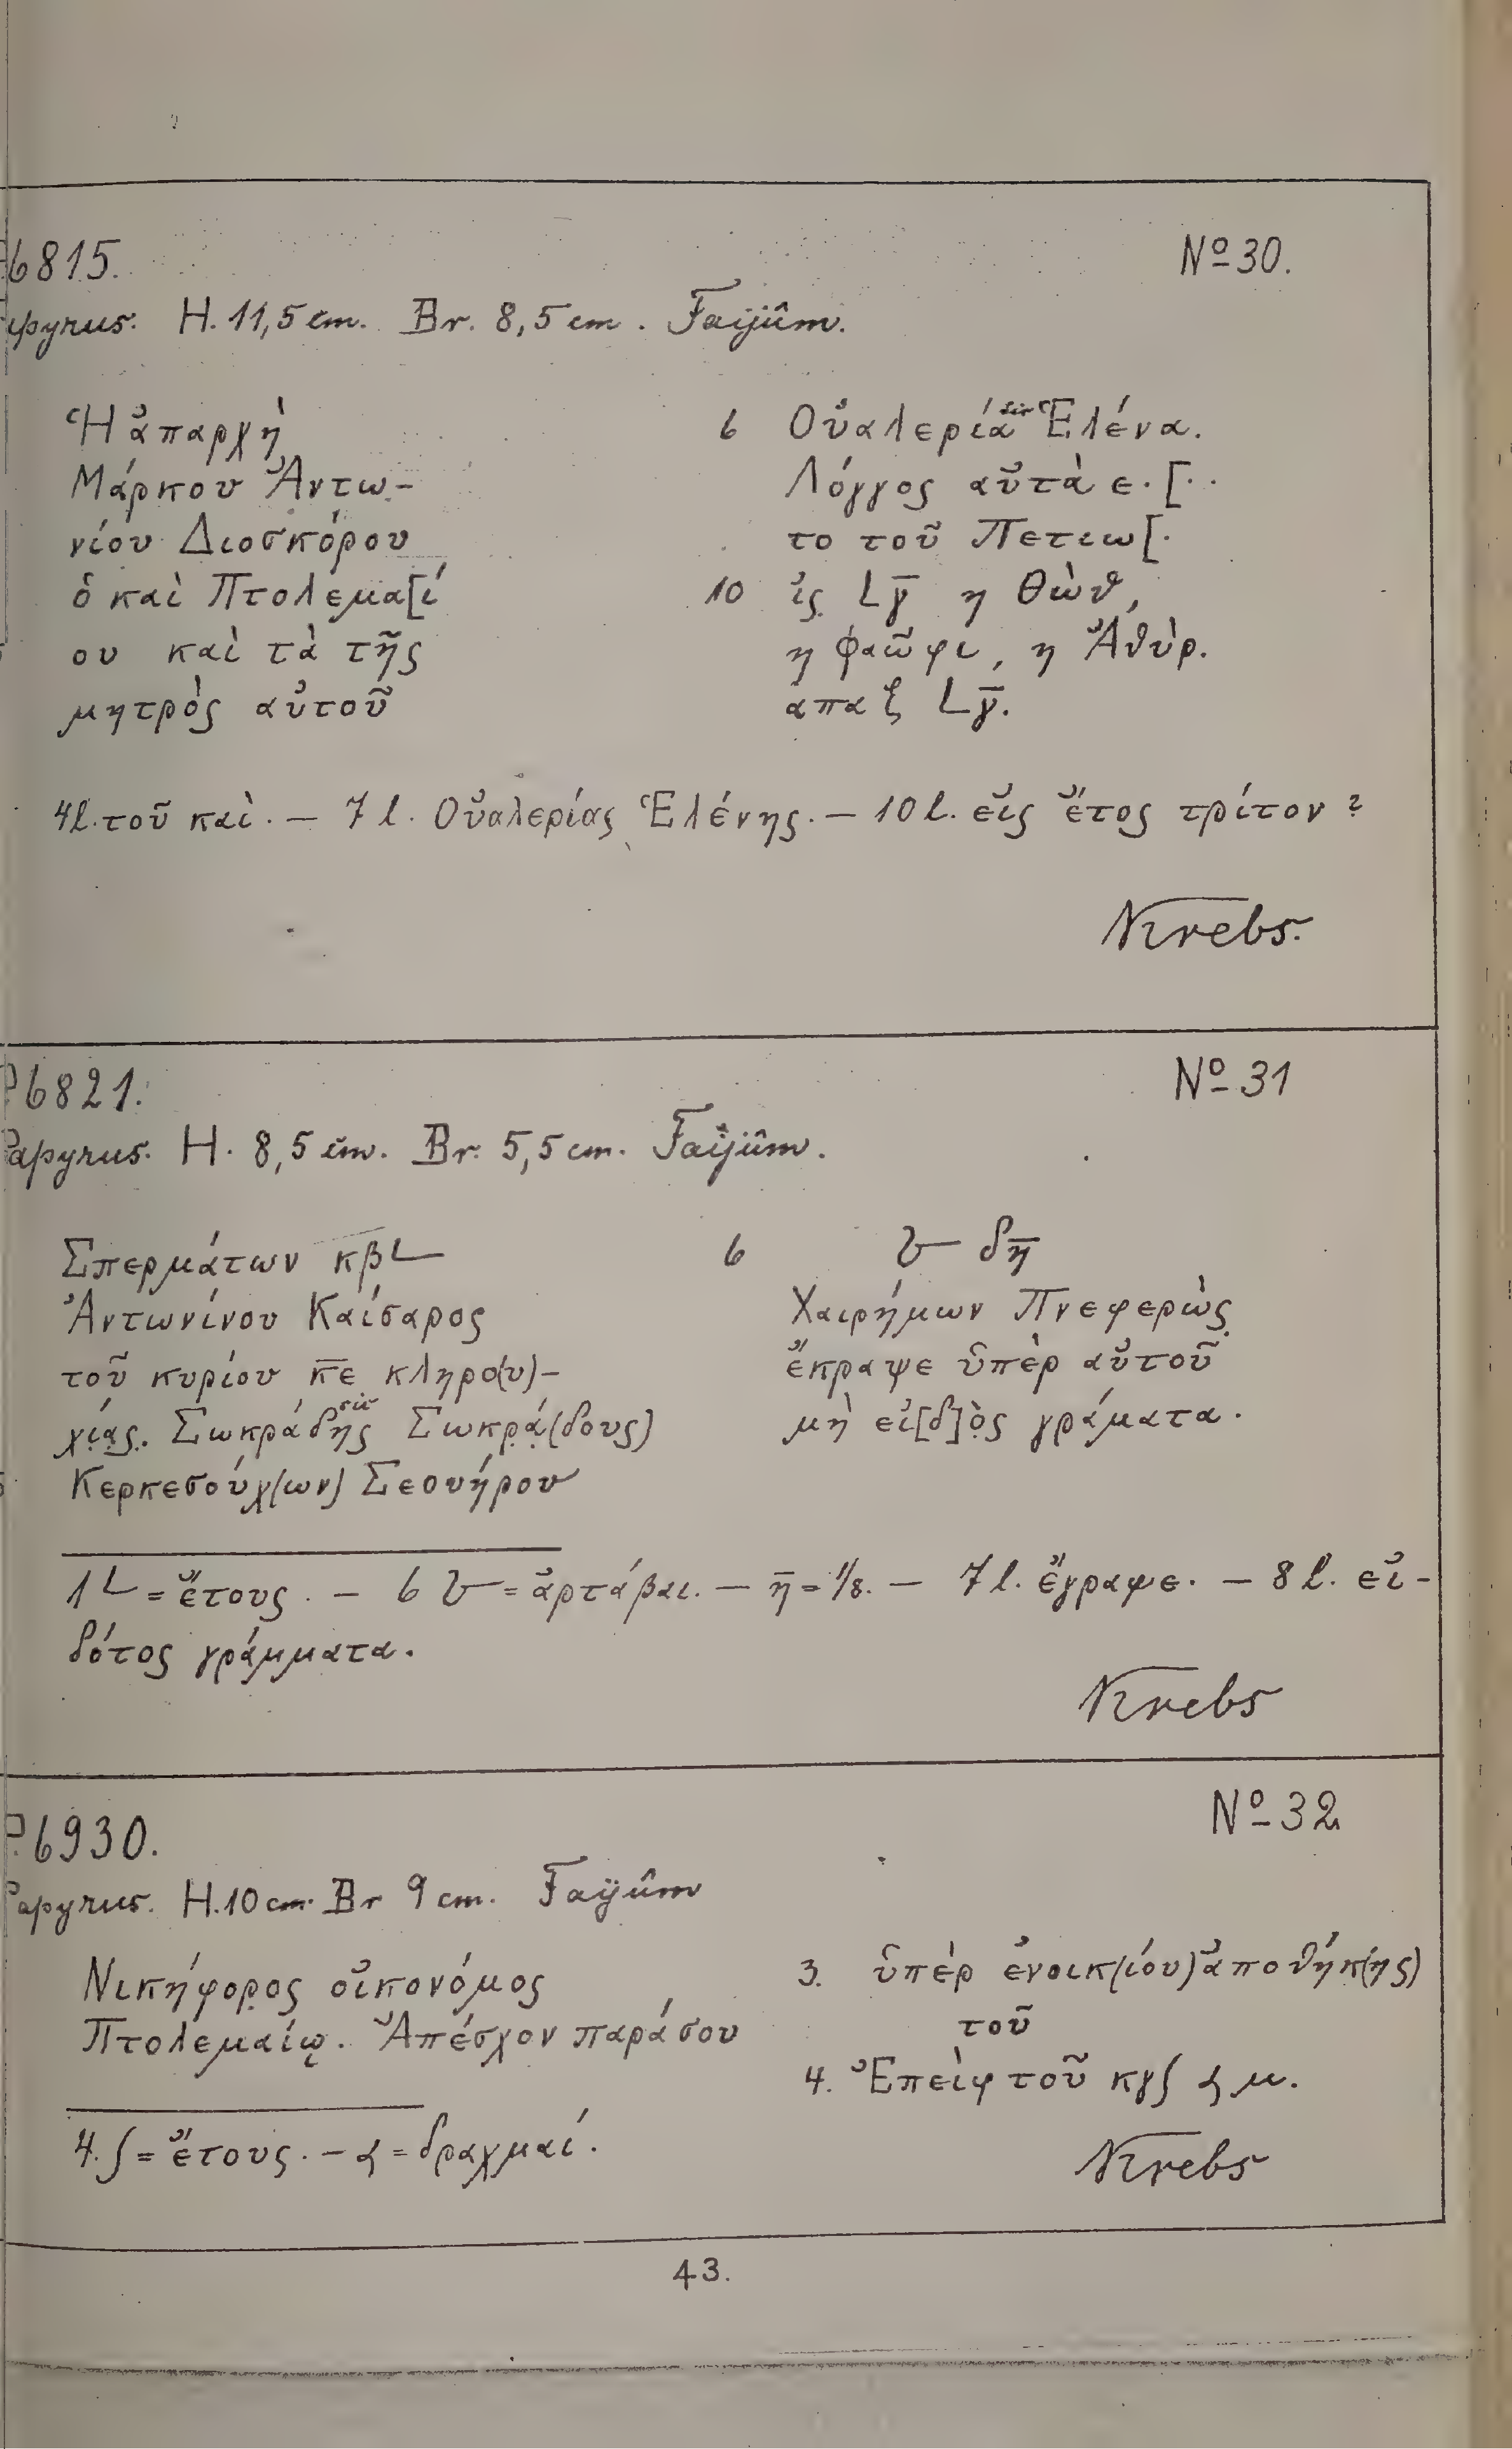 6815.
No 30.
apyrus. H. 11,5 cm. Br. 8,5 cm. Faijûm.
Ἡ ἀπαρχὴ
Μάρκου Ἀντω-
νίου Διοσκόρου
ὁ καὶ Πτολεμα[ί
ου καὶ τὰ τῆς
μητρὸς αὐτοῦ
6 Οὐαλερία sic Ἑλένα.
Λόγγος αὐτὰ ε.[..
το τοῦ Πετεω[.
10 ἰς L γ̅ η Θὼθ,
η Φαῶφι, η Ἁθὺρ.
απαξ L γ̅.
4 l. τοῦ καὶ. — 7 l. Οὐαλερίας Ἑλένης. — 10 l. εἰς ἔτος τρίτον?
Krebs.
P 6821.
No 31
Papyrus. H. 8,5 cm. Br. 5,5 cm. Faijûm.
Σπερμάτων κβ L
Ἀντωνίνου Καίσαρος
τοῦ κυρίου κ̅ε̅ κληρο(υ)-
χίας. Σωκράδης sic Σωκρά(δους)
Κερκεσούχ(ων) Σεουήρου
6 δη̅
Χαιρήμων Πνεφερὼς
ἔκραψε ὑπὲρ αὐτοῦ
μὴ εἰ[δ]ὸς γράματα.
1 L = ἔτους. — 6 = ἀρτάβαι. — η̅ = 1/8. — 7 l. ἔγραψε. — 8 l. εἰ-
δότος γράμματα.
Krebs
P. 6930.
No 32
Papyrus. H. 10 cm. Br 9 cm. Faijûm
Νικήφορος οἰκονόμος
Πτολεμαίῳ. Ἀπέσχον παρά σου
3. ὑπὲρ ἐνοικ(ίου) ἀποθήκ(ης)
τοῦ
4. Ἐπεὶφ τοῦ κγ ʃ μ.
4. ʃ = ἔτους. — = δραχμαί.
Krebs
43.